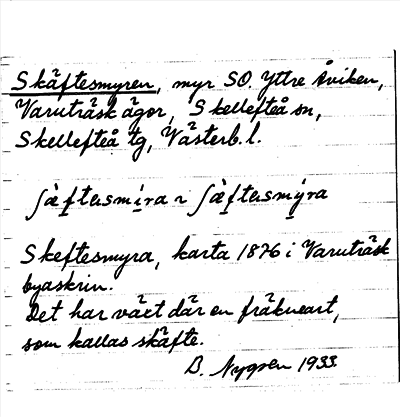 Skäftesmyren, myr SO. Yttre Åviken,
Varuträsk ägor, Skellefteå sn,
Skellefteå tg, Västerb. l.
ʃæ̀ftɐsmira ~ ʃæ̀ftɐsmýra
Skeftesmyra, karta 1876 i Varuträsk
byaskrin.
Det har växt där en fräkneart,
som kallas skäfte.
B. Nygren 1933.